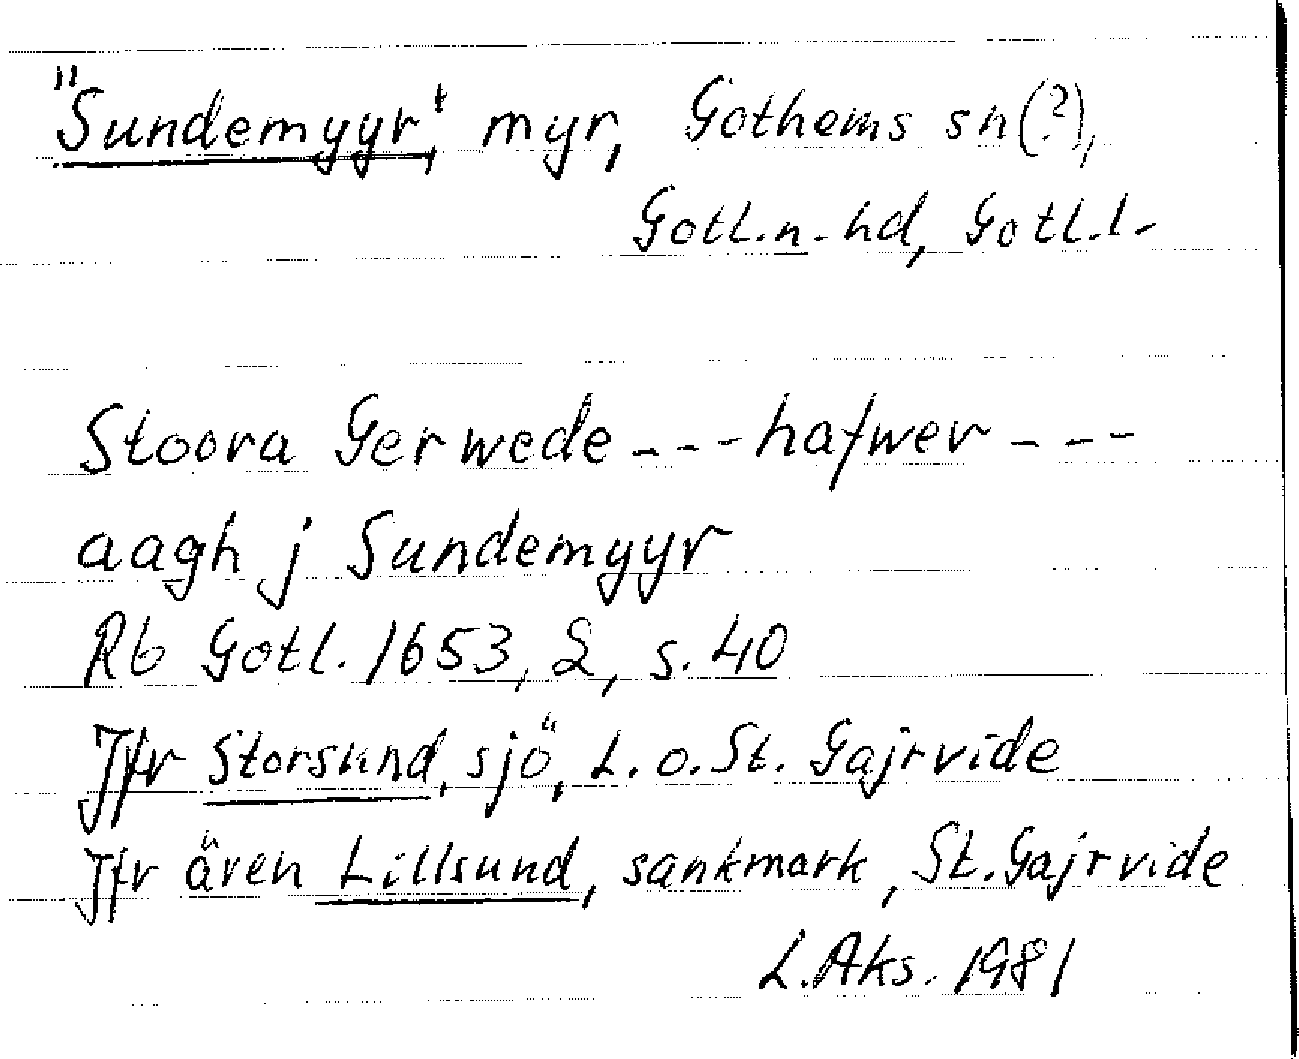 "Sundemyyr", myr, Gothems sn(?),
Gotl.n. hd, Gotl.l.
Stoora Gerwede --- hafwer ---
aagh j Sundemyyr
Rb Gotl. 1653, 2, s. 40
Jfr Storsund, sjö, L. o. St. Gajrvide
Jfr även Lillsund, sankmark, St. Gajrvide
L. Aks. 1981